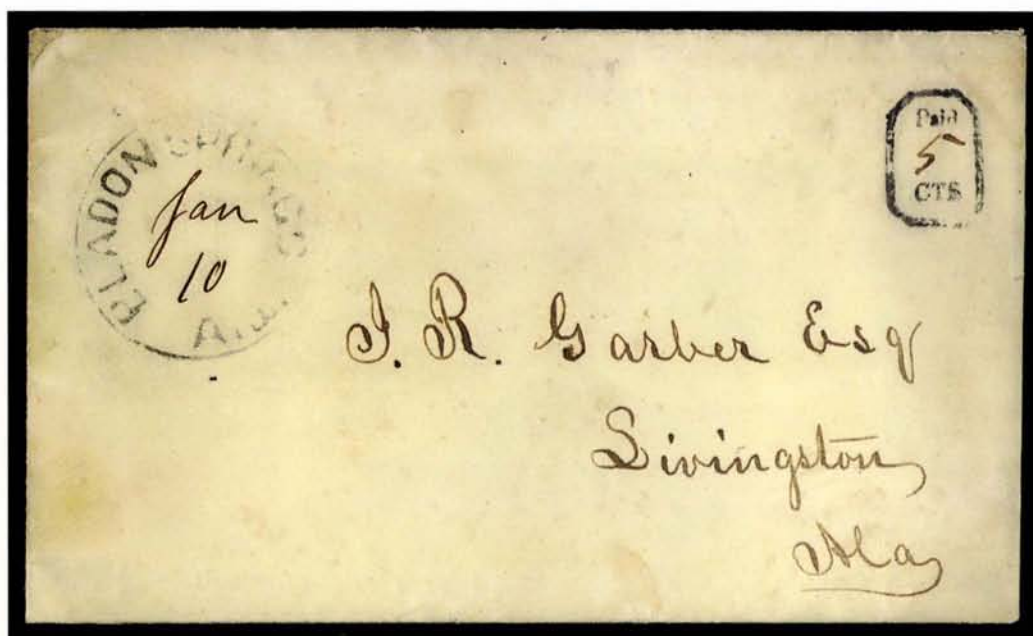 BLADON SPRINGS
Ala.
Jan
10
Paid
5
CTS
J. R. Garber Esq
Livingston
Ala